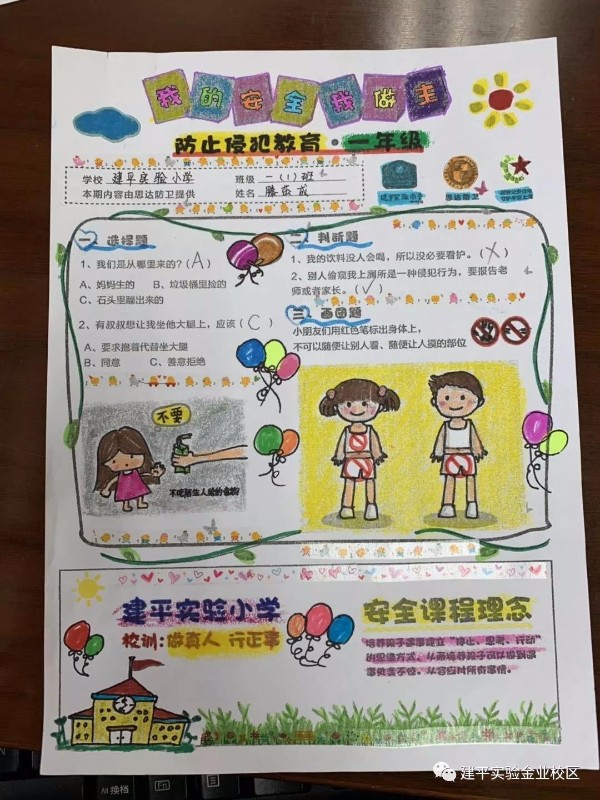 我的安全我做主
防止侵犯教育·一年级
学校 建平实验小学 班级 一(1)班
本期内容由思达防卫提供 姓名
建平实验小学 思达防卫
一、选择题
1、我们是从哪里来的？(A)
A、妈妈生的 B、垃圾桶里捡的
C、石头里蹦出来的
2、有叔叔想让我坐他大腿上，应该(C)
A、要求抱着代替坐大腿
B、同意 C、善意拒绝
二、判断题
1、我的饮料没人会喝，所以没必要看护。(X)
2、别人偷窥我上厕所是一种侵犯行为，要报告老
师或者家长。(√)
三、画图题
小朋友们用红色笔标出身体上，
不可以随便让别人看、随便让人摸的部位
不要
不吃陌生人给的食物
建平实验小学
校训：做真人 行正事
安全课程理念
培养孩子遇事建立“停止、思考、行动”
的思维方式，从而培养孩子可以做到遇
事处变不惊，从容应对所有事情。
Alt 换档
Fn
Ctrl
建平实验金业校区